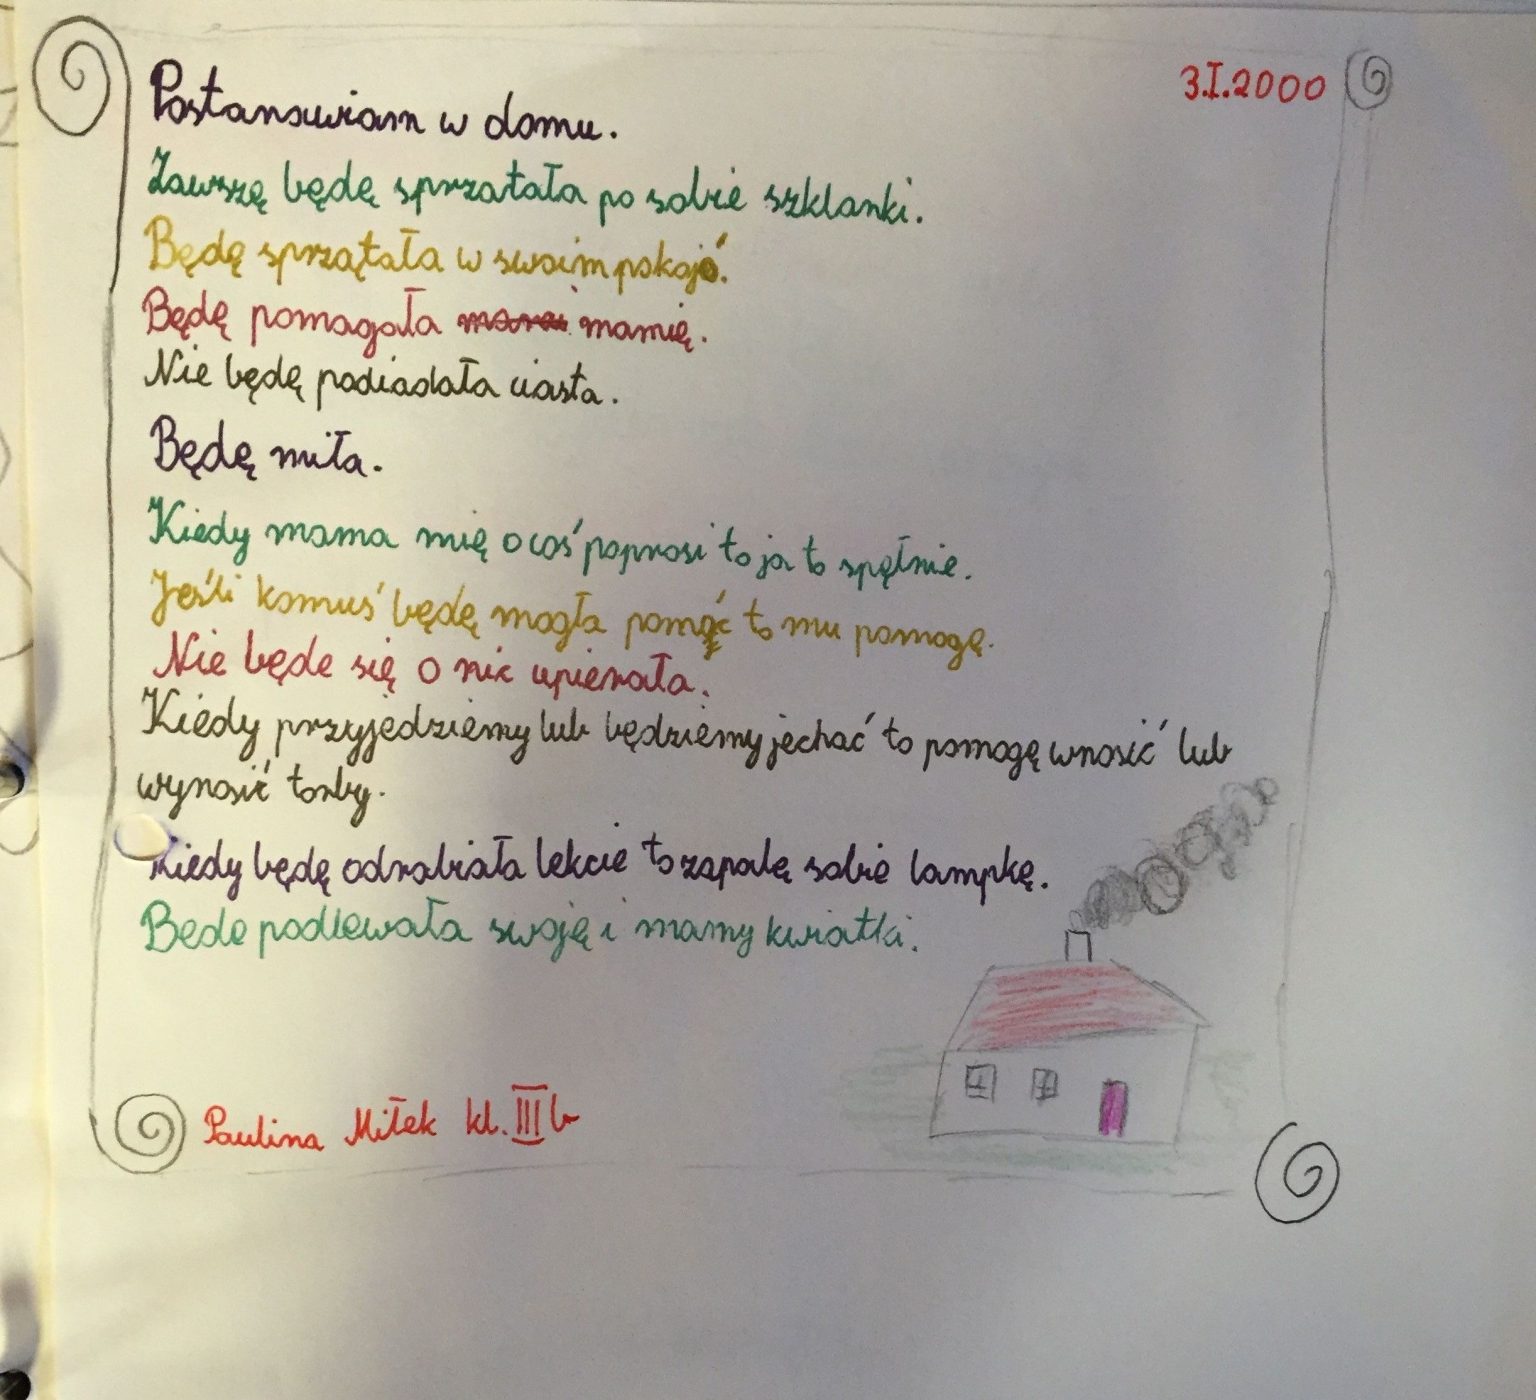 3.I.2000
Postanawiam w domu.
Zawszę będę sprzatała po sobie szklanki.
Będę sprzątała w swoim pokojó.
Będę pomagała mamię.
Nie będę podiadała ciasta.
Będę miła.
Kiedy mama mię o coś poprosi to ja to spęłnie.
Jeśli komuś będę mogła pomąć to mu pomogę.
Nie będe się o nic upierała.
Kiedy przyjedziemy lub będziemy jechać to pomogę wnosić lub
wynosić torby.
Kiedy będę odrabiała lekcie to zapalę sobie lampkę.
Bede podlewała swoję i mamy kwiatki.
Paulina Miłek kl. III b